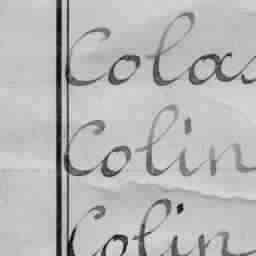 Colas
Colin
Colin